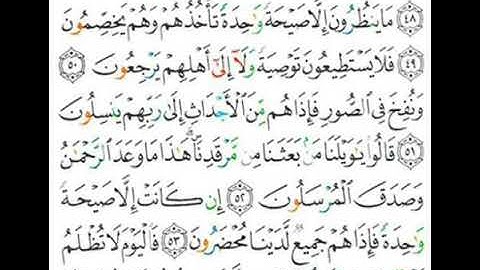 ﴿٤٨﴾ مَا يَنظُرُونَ إِلَّا صَيْحَةً وَٰحِدَةً تَأْخُذُهُمْ وَهُمْ يَخِصِّمُونَ
﴿٤٩﴾ فَلَا يَسْتَطِيعُونَ تَوْصِيَةً وَلَآ إِلَىٰٓ أَهْلِهِمْ يَرْجِعُونَ ﴿٥٠﴾
وَنُفِخَ فِى ٱلصُّورِ فَإِذَا هُم مِّنَ ٱلْأَجْدَاثِ إِلَىٰ رَبِّهِمْ يَنسِلُونَ
﴿٥١﴾ قَالُوا۟ يَٰوَيْلَنَا مَنۢ بَعَثَنَا مِن مَّرْقَدِنَا ۜ ۗ هَٰذَا مَا وَعَدَ ٱلرَّحْمَٰنُ
وَصَدَقَ ٱلْمُرْسَلُونَ ﴿٥٢﴾ إِن كَانَتْ إِلَّا صَيْحَةً
وَٰحِدَةً فَإِذَا هُمْ جَمِيعٌ لَّدَيْنَا مُحْضَرُونَ ﴿٥٣﴾ فَٱلْيَوْمَ لَا تُظْلَمُ